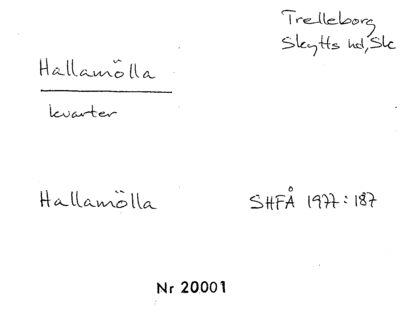 Trelleborg
Skytts hd, Sk
Hallamölla
kvarter
Hallamölla SHFÅ 1977:187
Nr 20001